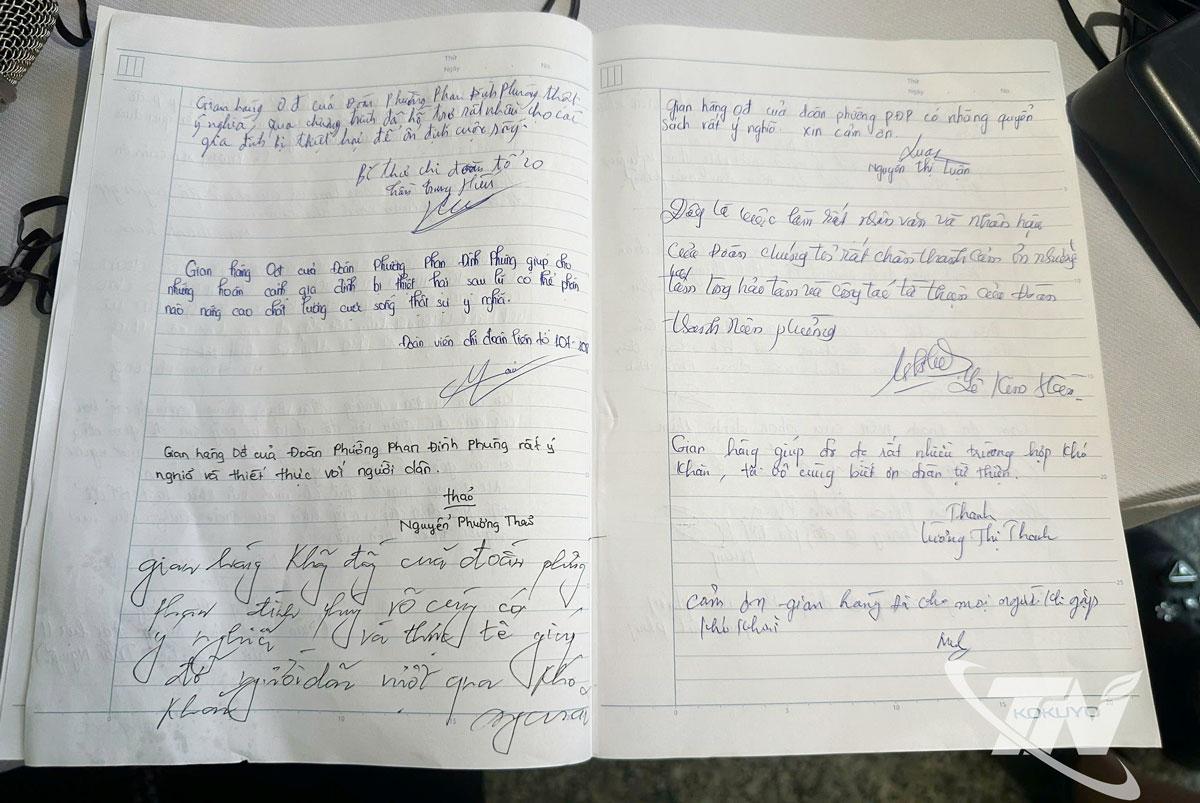 Thứ
Ngày
No.
Gian hàng 0đ của Đoàn Phường Phan Đình Phùng thật
ý nghĩa, qua chương trình đã hỗ trợ rất nhiều cho các
gia đình bị thiệt hại để ổn định cuộc sống.
Bí thư chi đoàn tổ 20
Trần Trung Hiếu
Gian hàng 0đ của Đoàn Phường Phan Đình Phùng giúp cho
những hoàn cảnh gia đình bị thiệt hại sau lũ có thể phần
nào nâng cao chất lượng cuộc sống thật sự ý nghĩa.
Đoàn viên chi đoàn liên tổ
Gian hàng 0đ của Đoàn Phường Phan Đình Phùng rất ý
nghĩa và thiết thực với người dân.
thảo
Nguyễn Phương Thảo
gian hàng không đồng của đoàn phường
phan đình phùng vô cùng có
ý nghĩa và thực tế giúp
đỡ người dân vượt qua khó
khăn
Thứ
Ngày
No.
Gian hàng 0đ của đoàn phường PĐP có những quyển
sách rất ý nghĩa. xin cảm ơn.
Nguyễn Thị Luận
Đây là việc làm rất nhân văn và nhân hậu
của Đoàn chúng tôi rất chân thành cảm ơn những
tấm lòng hảo tâm và công tác từ thiện của Đoàn
thanh niên phường
Gian hàng giúp đỡ đc rất nhiều trường hợp khó
khăn, tôi vô cùng biết ơn đoàn từ thiện.
Thanh
Lương Thị Thanh
cảm ơn gian hàng đã cho mọi người khi gặp
khó khăn
TN
KOKUYO